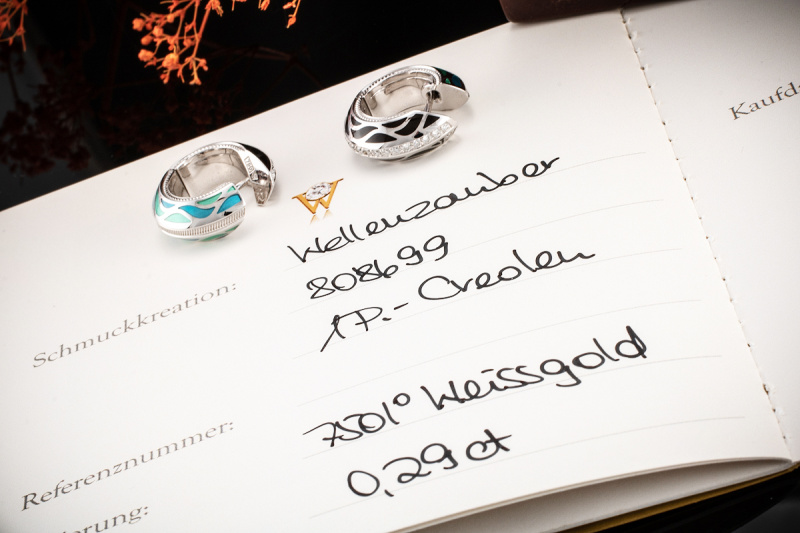 Kaufda
W
Wellenzauber
808699
1P.- Creolen
Schmuckkreation:
750/° Weissgold
Referenznummer:
0,29 ct
ierung: